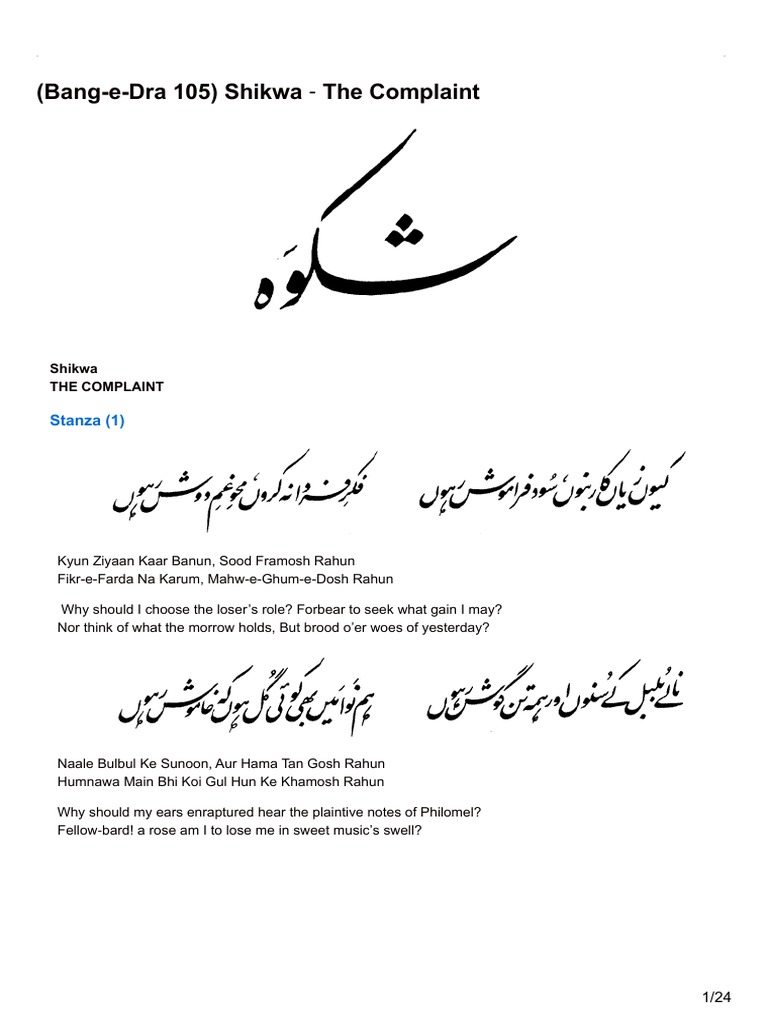 (Bang-e-Dra 105) Shikwa - The Complaint
شکوَہ
Shikwa
THE COMPLAINT
Stanza (1)
کیوں زیاں کار بنوں، سُود فراموش رہوں
فکرِ فردا نہ کروں، محوِ غمِ دوش رہوں
Kyun Ziyaan Kaar Banun, Sood Framosh Rahun
Fikr-e-Farda Na Karum, Mahw-e-Ghum-e-Dosh Rahun
Why should I choose the loser’s role? Forbear to seek what gain I may?
Nor think of what the morrow holds, But brood o’er woes of yesterday?
نالے بُلبل کے سُنوں اور ہمہ تن گوش رہوں
ہم نَوا مَیں بھی کوئی گُل ہوں کہ خاموش رہوں
Naale Bulbul Ke Sunoon, Aur Hama Tan Gosh Rahun
Humnawa Main Bhi Koi Gul Hun Ke Khamosh Rahun
Why should my ears enraptured hear the plaintive notes of Philomel?
Fellow-bard! a rose am I to lose me in sweet music’s swell?
1/24